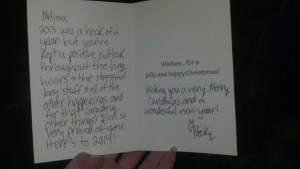 Melissa,
2013 was a heck of a
year but you've
kept a positive outlook
throughout the long
hours + the stressful
busy stuff + all of the
other happenings and
for that (among
other things) I am so
very proud of you.
Here's to 2014!
Wishes...for a
jolly and happy Christmas!
Wishing you a very Merry
Christmas and a
wonderful new year!